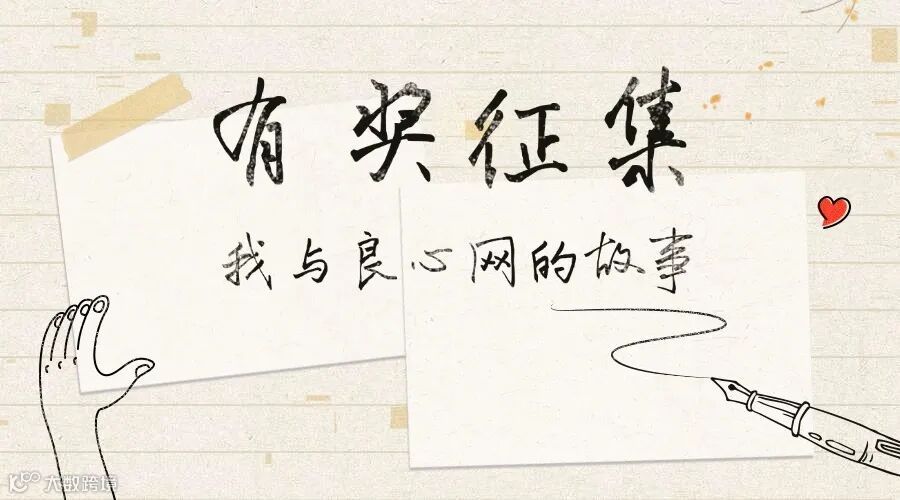 有奖征集
我与良心网的故事
大数跨境